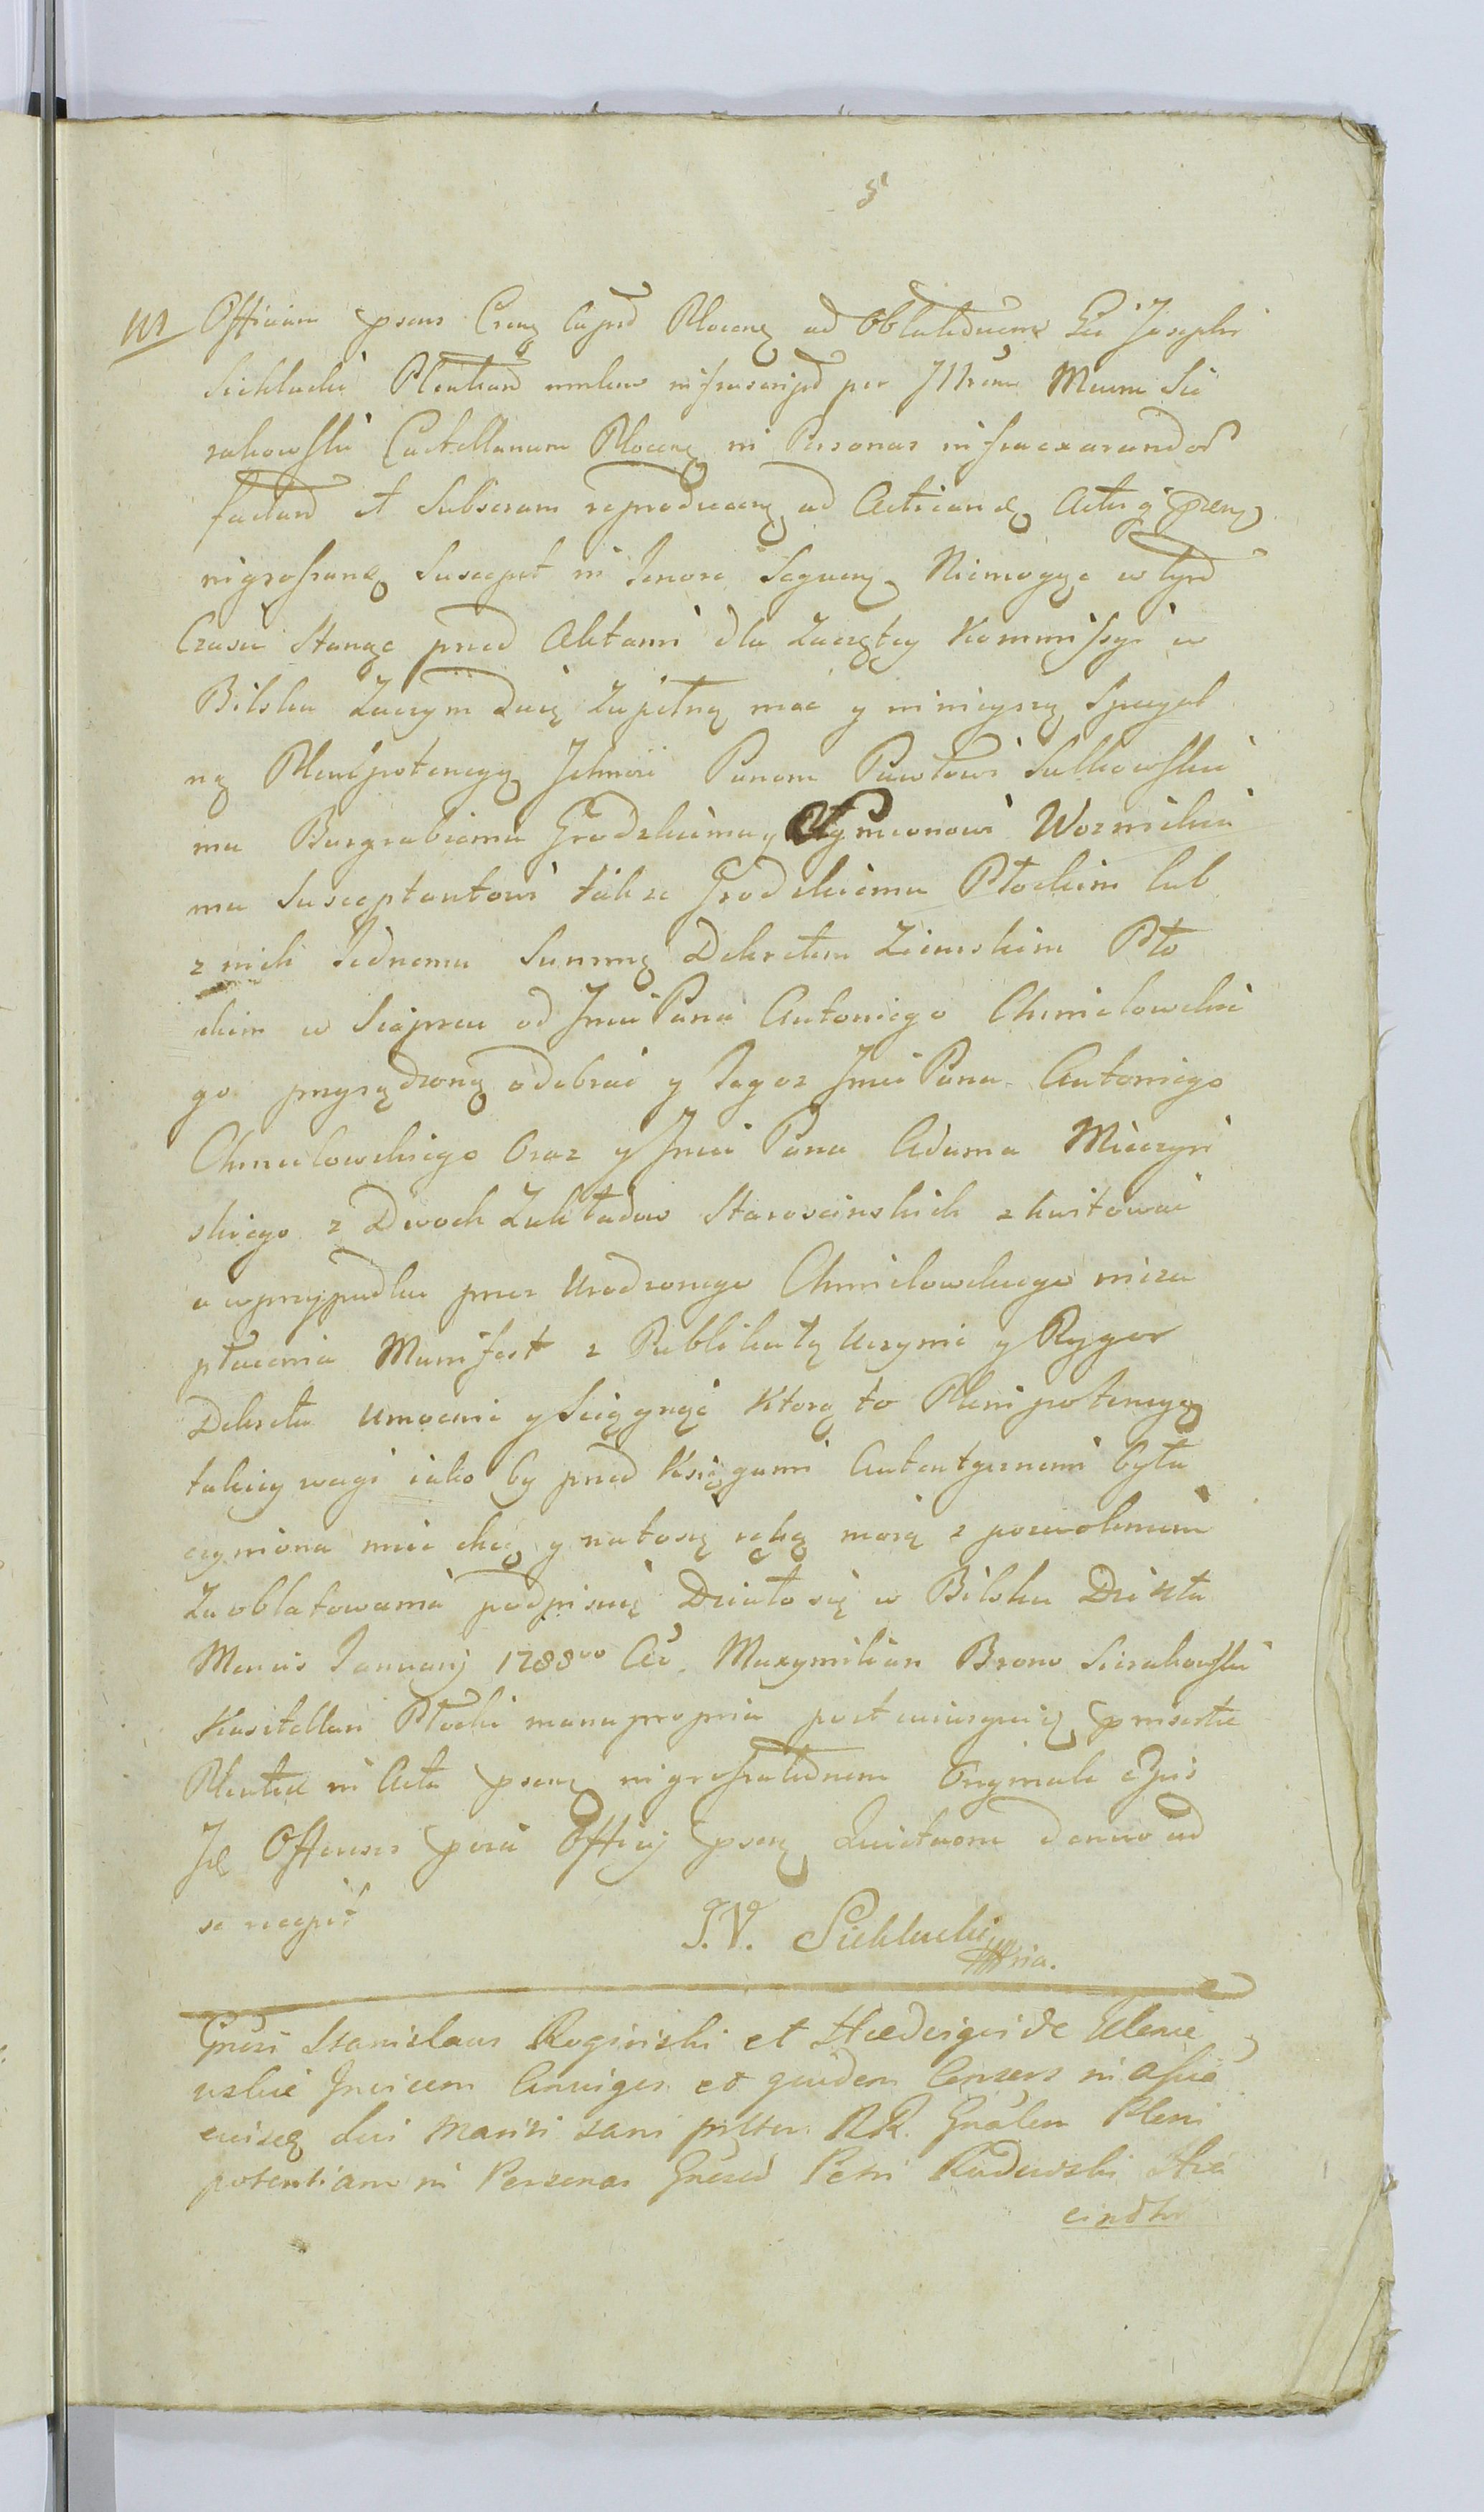 5
Officium psens Crense Capnd Plocen ad Oblatiduem Gsi Josephi
Sieklucki Plentiand unlim infrascripd per Illrem Mcum Sie
rakowski Castellanum Plocen in Personas infraexarandor
factand et Subscram reproducen ad Acticand Actisq psen
ingrossand Suscepit in Tenore Sequen Niemogąc w tym
Czasu Stanąc przed Aktami dla zaczętey Kommissyi w
Bilsku Zaczym Daię zupełną moc y ninieyszą Specyal
ną Plenipotencyą Ichmcii Panom Pawłowi Sulkowskie
mu Burgrabiemu Grodzkiemu y Szymonowi Woznickie
mu Susceptantowi takze Grodzkiemu Płockim lub
z nich Jednemu Summę Dekretem Ziemskim Pło
ckim w Sierpcu od Jmci Pana Antoniego Chmielowskie
go przysądzoną odebrać y Tegoz Jmci Pana Antoniego
Chmielowskiego Oraz y Jmci Pana Adama Mieczyń
skiego z Dwoch Zakładow Starościnskich zkwitowac
a wprzypadku przez Urodzonego Chmielowskiego nieza
płacenia Manifest z Publikatą Uczynic y Rygor
Dekretu umocnic y Sciągnąć Ktorą to Plenipotencyą
takiey wagi iako by przed Księgami Autentycznemi była
czyniona miec chcę y natosię ręką moią z pozwoleniem
Zaoblatowania podpisuię Działo się w Bilsku Die Xta
Mensis Januarij 1788vo Ao. Maxymilian Brono Sierakowski
Kasztellan Płocki manu propria post cuiusquid psinserte
Plentie in Acta psen ingrossatidnem Originale Ejus
Id Offerens psens Officij psen Quietaone denuo ad
se recepit
J.V. Sieklucki mpria.
Gnosi Stanislaus Rogiński et Hedvigis de
Invicem Coniuges et quidem Consors in assiae
eiusq dci Mariti sani psttn RR. Gnalem Pleni
potentiam in Personas Gnosod Petri Radowski Stie
eindhr